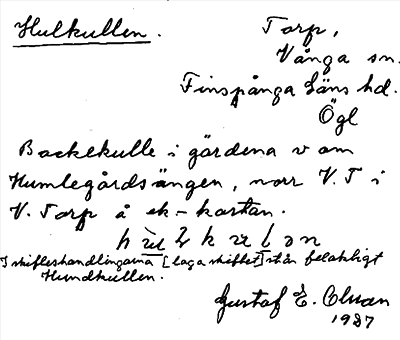 Hulkullen.
Torp,
Vånga sn.
Finspånga läns hd.
Ögl
Backkulle i gärdena v om
Humlegårdsängen, norr V. T i
V. Torp å ek-kartan.
I skifteshandlingarna [laga skiftet] står felaktligt
Hundkullen.
Gustaf E. Olvan
1927